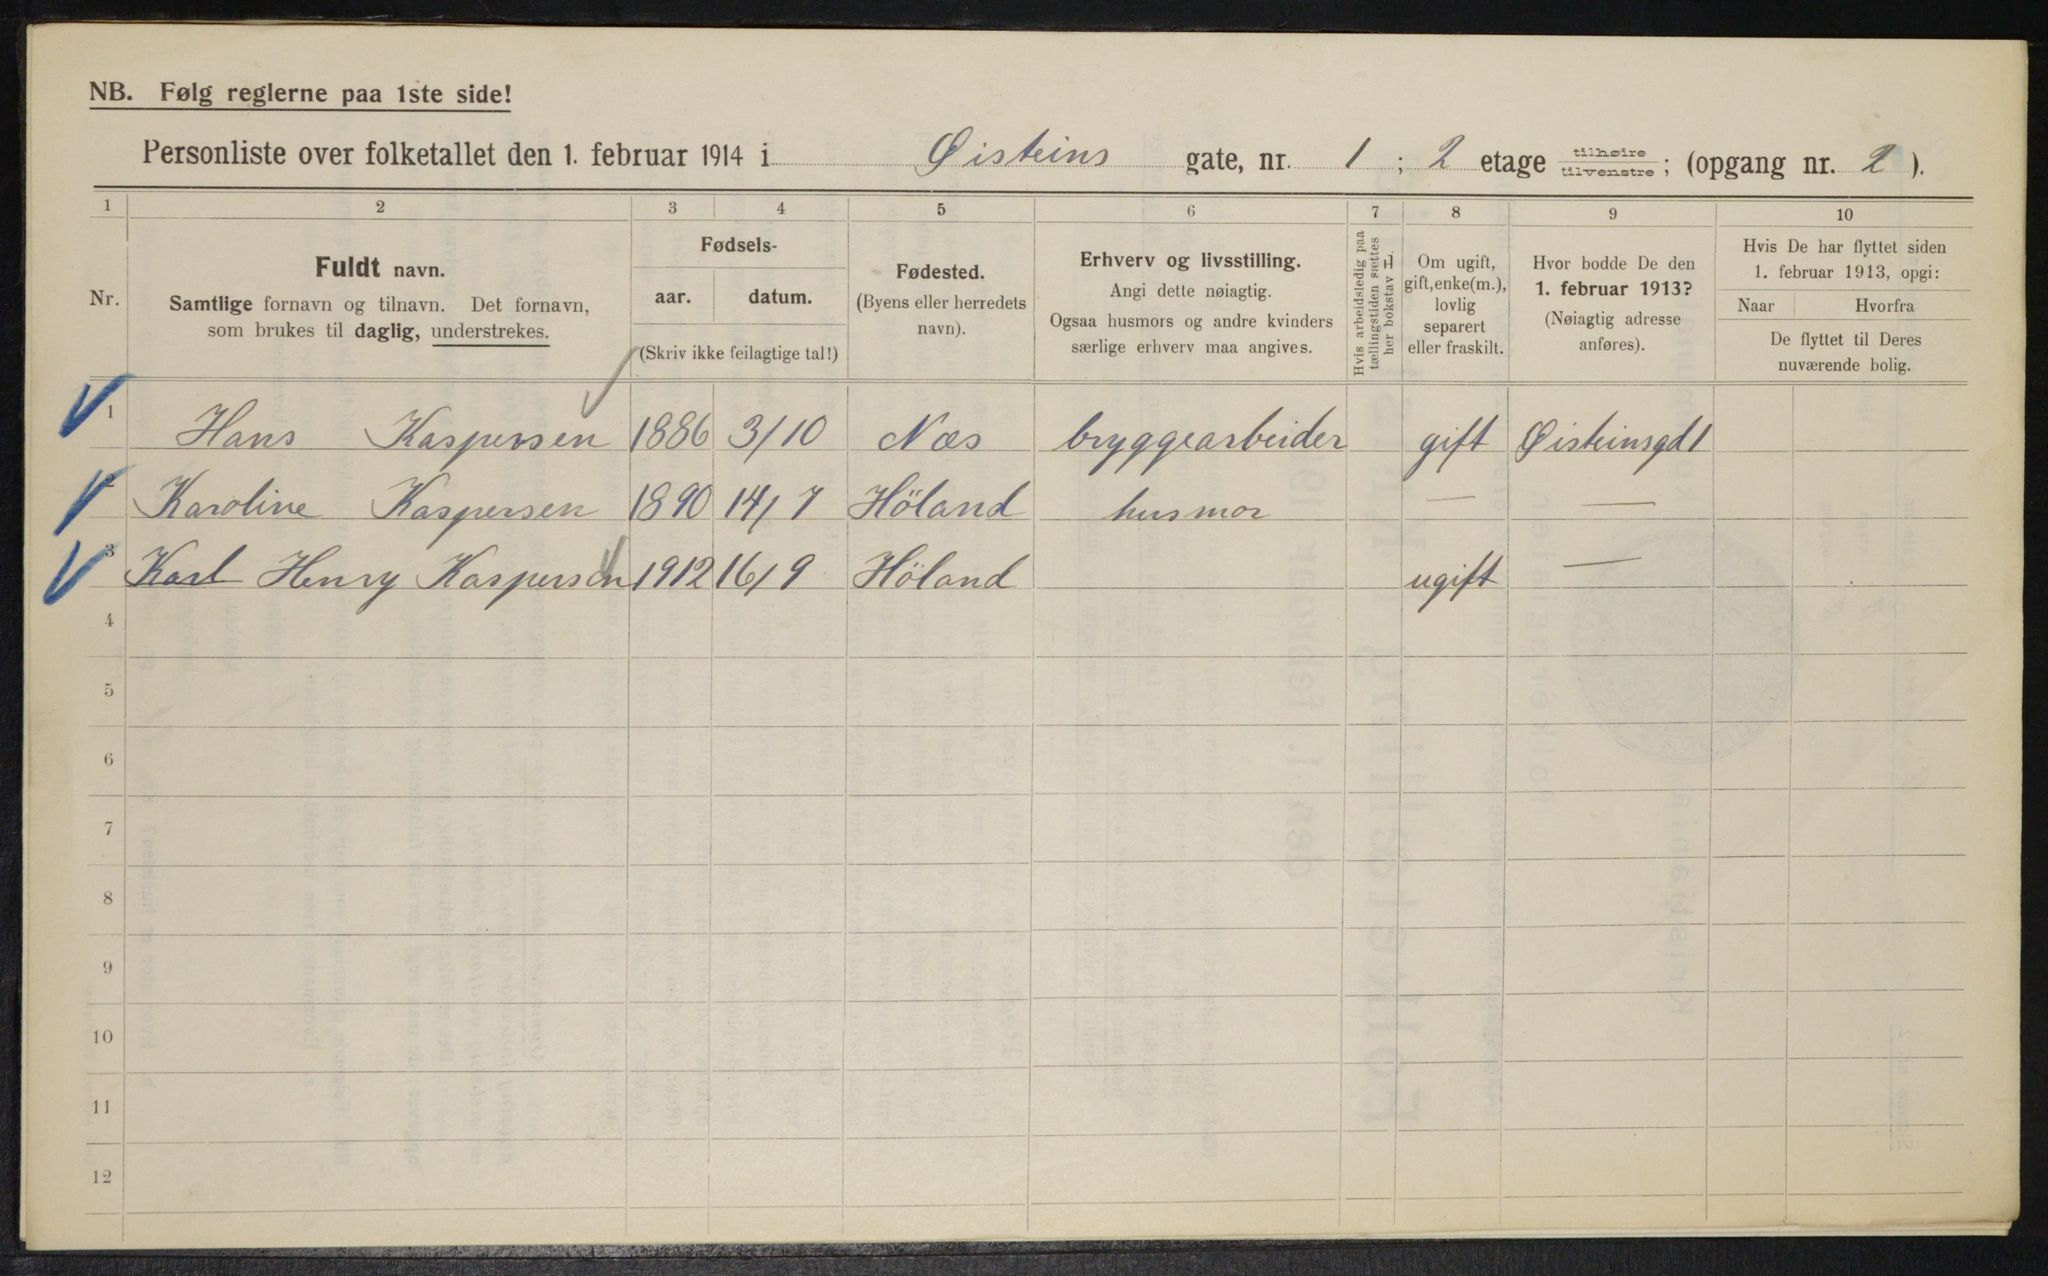 NB. Følg reglerne paa 1ste side!
Personliste over folketallet den 1. februar 1914 i Øisteins gate, nr. 1 ; 2 etage tilhøire tilvenstre ; (opgang nr. 2 ).
1 2 3 4 5 6 7 8 9 10
Nr.
Fuldt navn.
Samtlige fornavn og tilnavn. Det fornavn,
som brukes til daglig, understrekes.
Fødsels-
aar. datum.
(Skriv ikke feilagtige tal!)
Fødested.
(Byens eller herredets
navn).
Erhverv og livsstilling.
Angi dette nøiagtig.
Ogsaa husmors og andre kvinders
særlige erhverv maa angives.
Hvis arbeidsledig paa
tællingstiden sættes
her bokstav L.
Om ugift,
gift, enke(m.),
lovlig
separert
eller fraskilt.
Hvor bodde De den
1. februar 1913?
(Nøiagtig adresse
anføres).
Hvis De har flyttet siden
1. februar 1913, opgi:
Naar Hvorfra
De flyttet til Deres
nuværende bolig.
1 Hans Kaspersen 1886 3/10 Næs bryggearbeider gift Øisteinsgd 1
2 Karoline Kaspersen 1890 14/7 Höland husmor — —
3 Karl Henry Kaspersen 1912 16/9 Höland ugift —
4
5
6
7
8
9
10
11
12